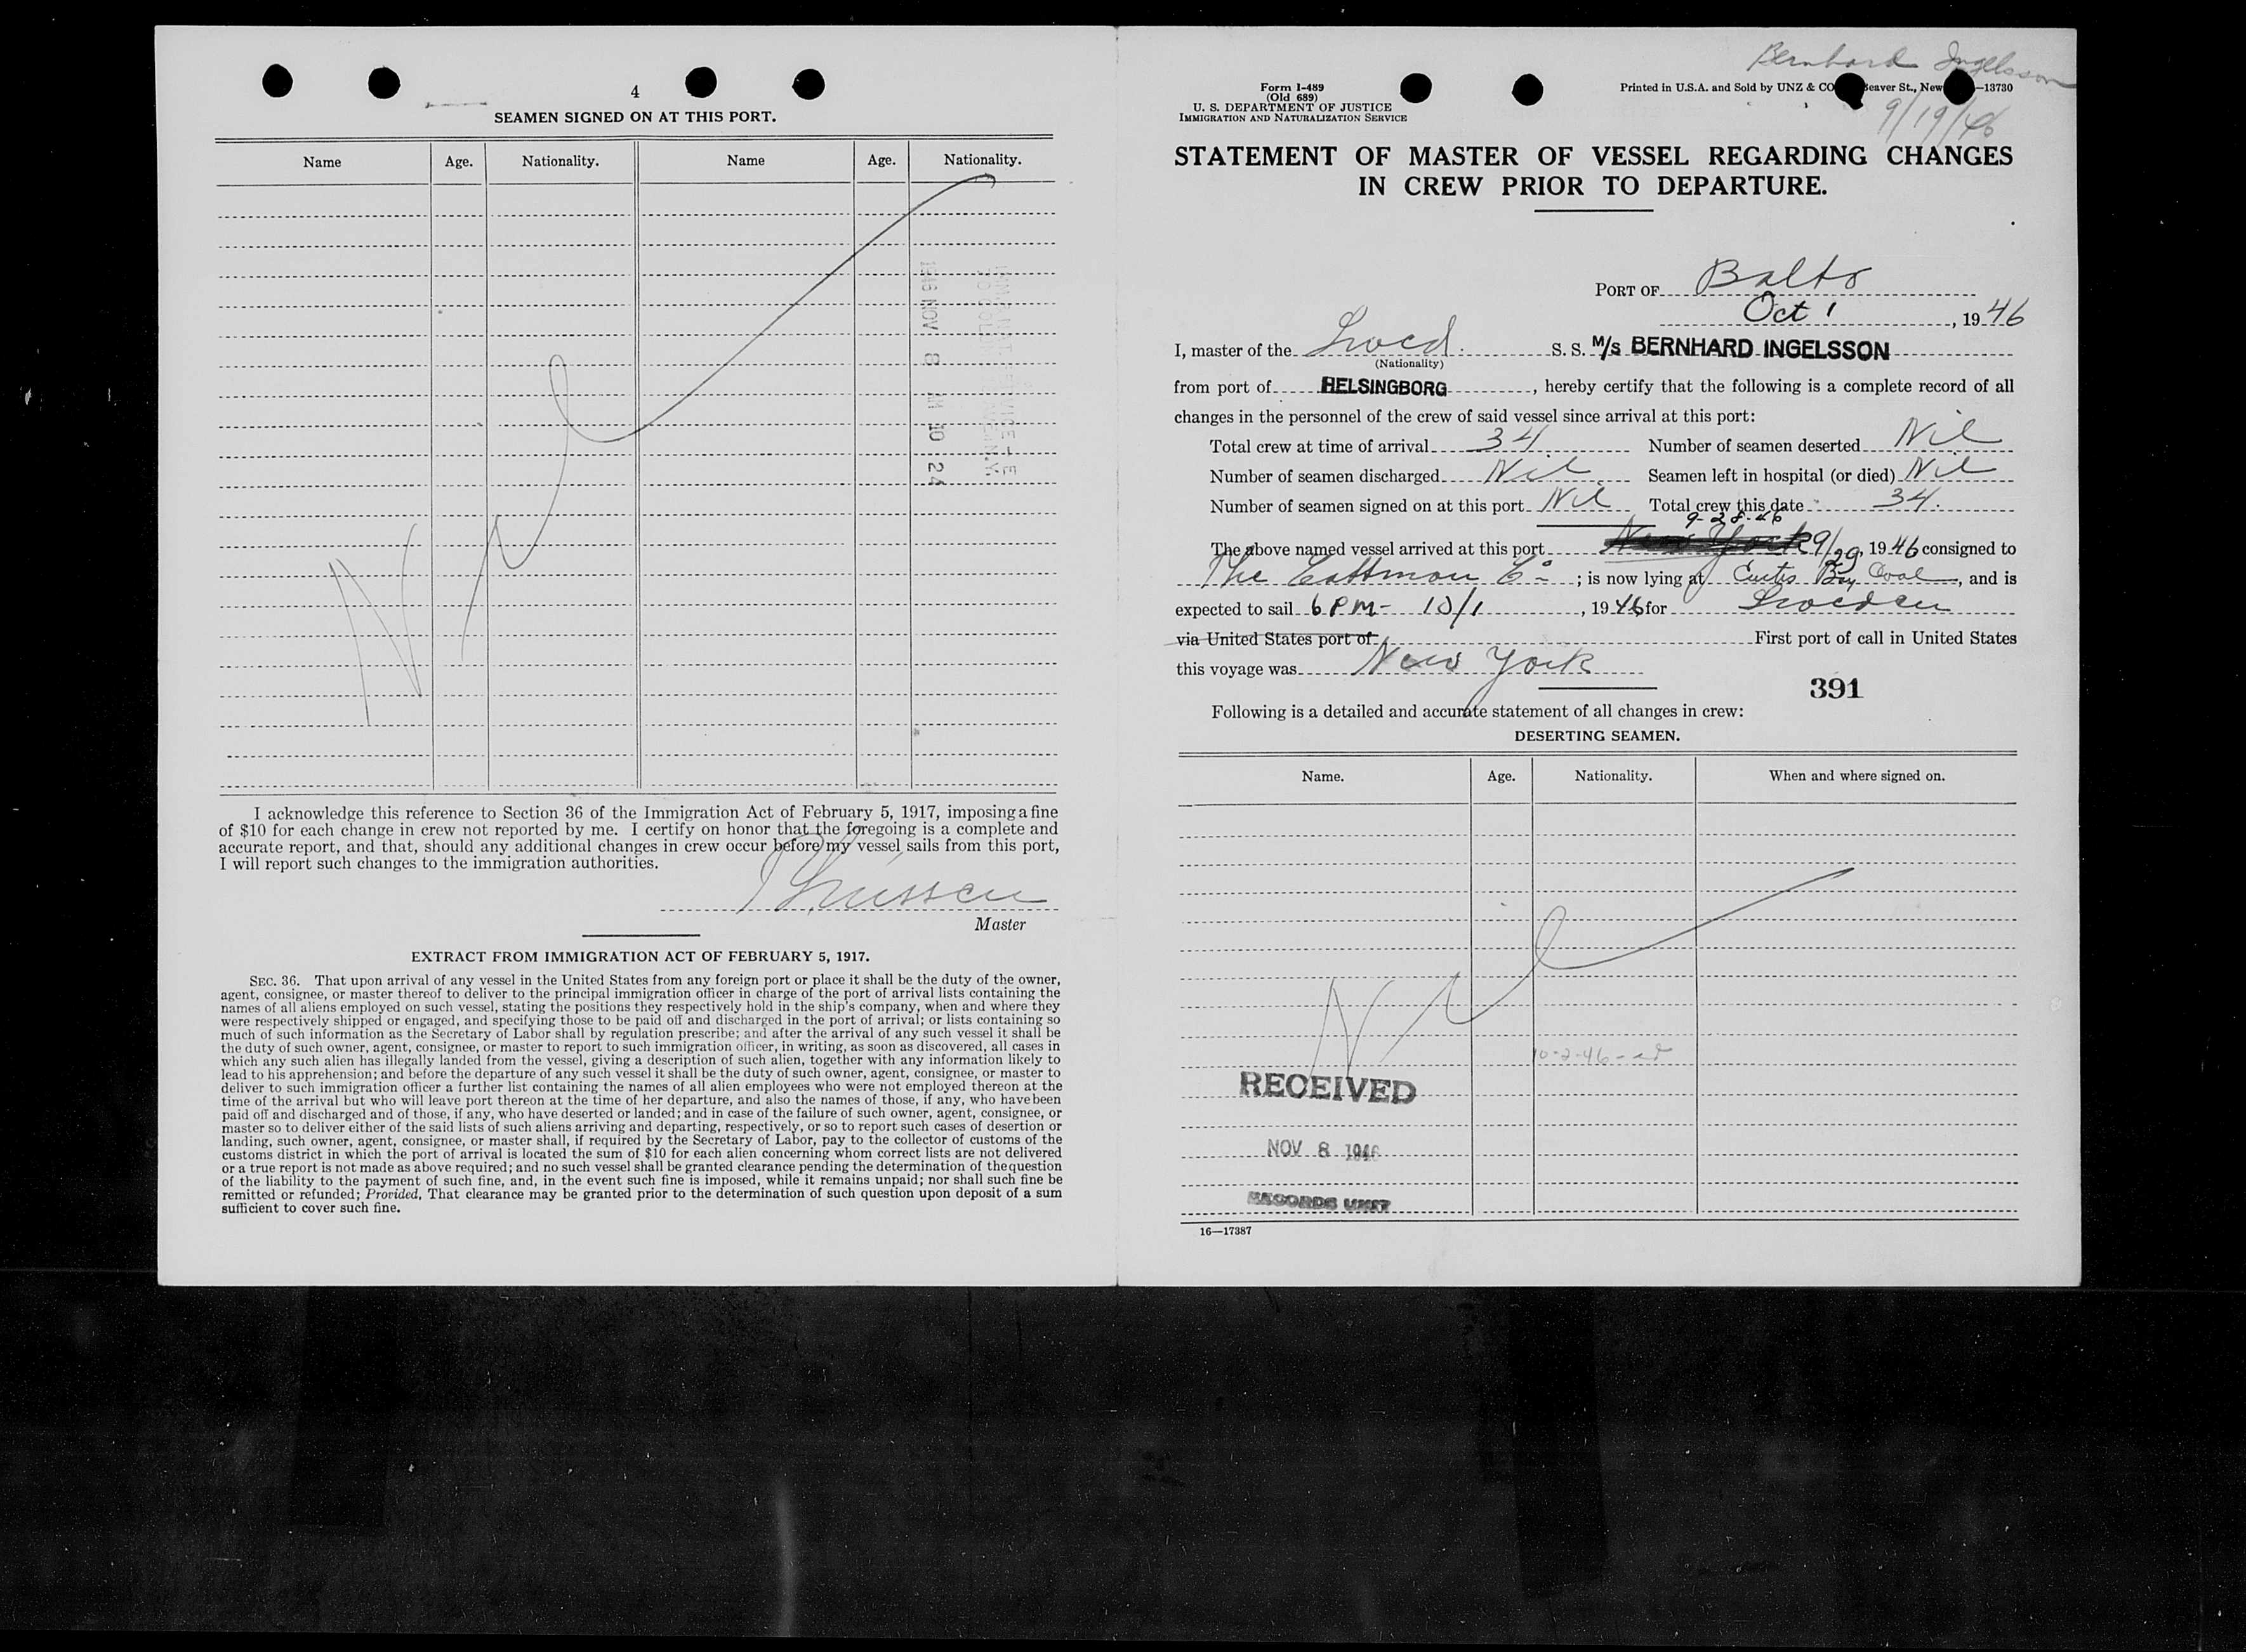 4
SEAMEN SIGNED ON AT THIS PORT.
Name Age. Nationality. Name Age. Nationality.
Nil
1946 NOV 8 AM 10 24
I acknowledge this reference to Section 36 of the Immigration Act of February 5, 1917, imposing a fine
of $10 for each change in crew not reported by me. I certify on honor that the foregoing is a complete and
accurate report, and that, should any additional changes in crew occur before my vessel sails from this port,
I will report such changes to the immigration authorities.
Master
EXTRACT FROM IMMIGRATION ACT OF FEBRUARY 5, 1917.
SEC. 36. That upon arrival of any vessel in the United States from any foreign port or place it shall be the duty of the owner,
agent, consignee, or master thereof to deliver to the principal immigration officer in charge of the port of arrival lists containing the
names of all aliens employed on such vessel, stating the positions they respectively hold in the ship's company, when and where they
were respectively shipped or engaged, and specifying those to be paid off and discharged in the port of arrival; or lists containing so
much of such information as the Secretary of Labor shall by regulation prescribe; and after the arrival of any such vessel it shall be
the duty of such owner, agent, consignee, or master to report to such immigration officer, in writing, as soon as discovered, all cases in
which any such alien has illegally landed from the vessel, giving a description of such alien, together with any information likely to
lead to his apprehension; and before the departure of any such vessel it shall be the duty of such owner, agent, consignee, or master to
deliver to such immigration officer a further list containing the names of all alien employees who were not employed thereon at the
time of the arrival but who will leave port thereon at the time of her departure, and also the names of those, if any, who have been
paid off and discharged and of those, if any, who have deserted or landed; and in case of the failure of such owner, agent, consignee, or
master so to deliver either of the said lists of such aliens arriving and departing, respectively, or so to report such cases of desertion or
landing, such owner, agent, consignee, or master shall, if required by the Secretary of Labor, pay to the collector of customs of the
customs district in which the port of arrival is located the sum of $10 for each alien concerning whom correct lists are not delivered
or a true report is not made as above required; and no such vessel shall be granted clearance pending the determination of the question
of the liability to the payment of such fine, and, in the event such fine is imposed, while it remains unpaid; nor shall such fine be
remitted or refunded; Provided, That clearance may be granted prior to the determination of such question upon deposit of a sum
sufficient to cover such fine.
Bernhard Ingelsson
9/19/46
Form I-489
(Old 689)
U. S. DEPARTMENT OF JUSTICE
IMMIGRATION AND NATURALIZATION SERVICE
Printed in U.S.A. and Sold by UNZ & CO Beaver St., New —13730
STATEMENT OF MASTER OF VESSEL REGARDING CHANGES
IN CREW PRIOR TO DEPARTURE.
PORT OF Balto
Oct 1, 1946
I, master of the Swed. S. S. M/S BERNHARD INGELSSON
(Nationality)
from port of HELSINGBORG, hereby certify that the following is a complete record of all
changes in the personnel of the crew of said vessel since arrival at this port:
Total crew at time of arrival 34 Number of seamen deserted Nil
Number of seamen discharged Nil Seamen left in hospital (or died) Nil
Number of seamen signed on at this port Nil Total crew this date 34.
9-28-46
The above named vessel arrived at this port New York 9/29, 1946 consigned to
The Co; is now lying at Curtis Bay Coal, and is
expected to sail 6 PM- 10/1, 1946 for Sweden
via United States port of First port of call in United States
this voyage was New York
391
Following is a detailed and accurate statement of all changes in crew:
DESERTING SEAMEN.
Name. Age. Nationality. When and where signed on.
Nil
10-2-46
RECEIVED
NOV 8 1946
RECORDS UNIT
16—17387